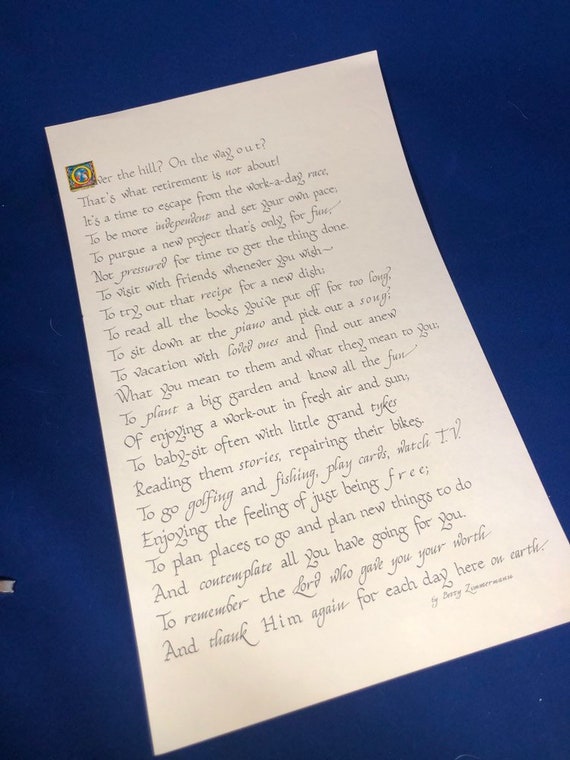 Over the hill? On the way out?
That's what retirement is not about!
It's a time to escape from the work-a-day race,
To be more independent and set your own pace;
To pursue a new project that's only for fun,
Not pressured for time to get the thing done.
To visit with friends whenever you wish—
To try out that recipe for a new dish;
To read all the books you've put off for too long,
To sit down at the piano and pick out a song;
To vacation with loved ones and find out anew
What you mean to them and what they mean to you;
To plant a big garden and know all the fun
Of enjoying a work-out in fresh air and sun;
To baby-sit often with little grand tykes
Reading them stories, repairing their bikes.
To go golfing and fishing, play cards, watch T.V.
Enjoying the feeling of just being free;
To plan places to go and plan new things to do
And contemplate all you have going for you.
To remember the Lord who gave you your worth
And thank Him again for each day here on earth.
by Betty Zimmermann